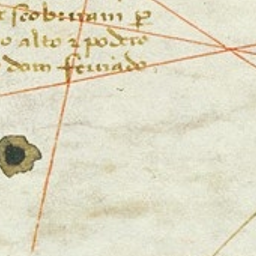 scobriram p
o alto ⁊ podcro
dom fernado